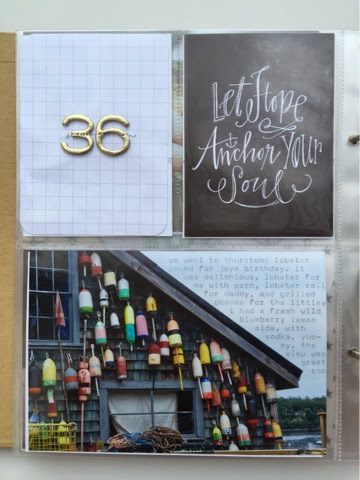 36
Let Hope
Anchor Your
Soul
we went to thurstons lobster
pound for jays birthday. it
was delishious. lobster for
me with corn, lobster roll
for daddy, and grilled
cheese for the littles
i had a fresh wild
blueberry lemon
side, with
vodka. yum-
my. the
view was
great
too